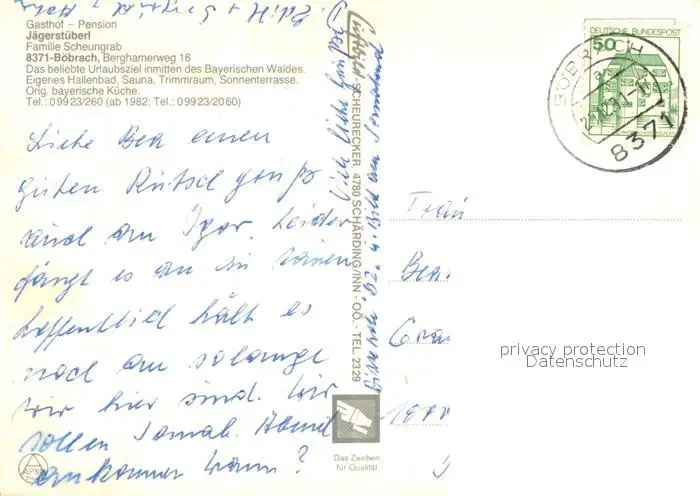 Gasthof – Pension
Jägerstüberl
Familie Scheungrab
8371-Böbrach, Berghamerweg 16
Das beliebte Urlaubsziel inmitten des Bayerischen Waldes.
Eigenes Hallenbad, Sauna, Trimmraum, Sonnenterrasse.
Orig. bayerische Küche.
Tel.: 09923/260 (ab 1982: Tel.: 09923/2060)
Liebe Bea einen
guten Rutsch
auch an Igor. Leider
fängt es an zu
hält es
noch an solange
wir hier sind. Wir
wollen Abend
ankommen wann?
Viele liebe Grüße
SCHEURECKER 4780 SCHÄRDING/INN · OÖ. · TEL. 2329
Das Zeichen
für Qualität
ALPINE
DEUTSCHE BUNDESPOST
50
BÖBRACH
8371
Frau
Bea
privacy protection
Datenschutz